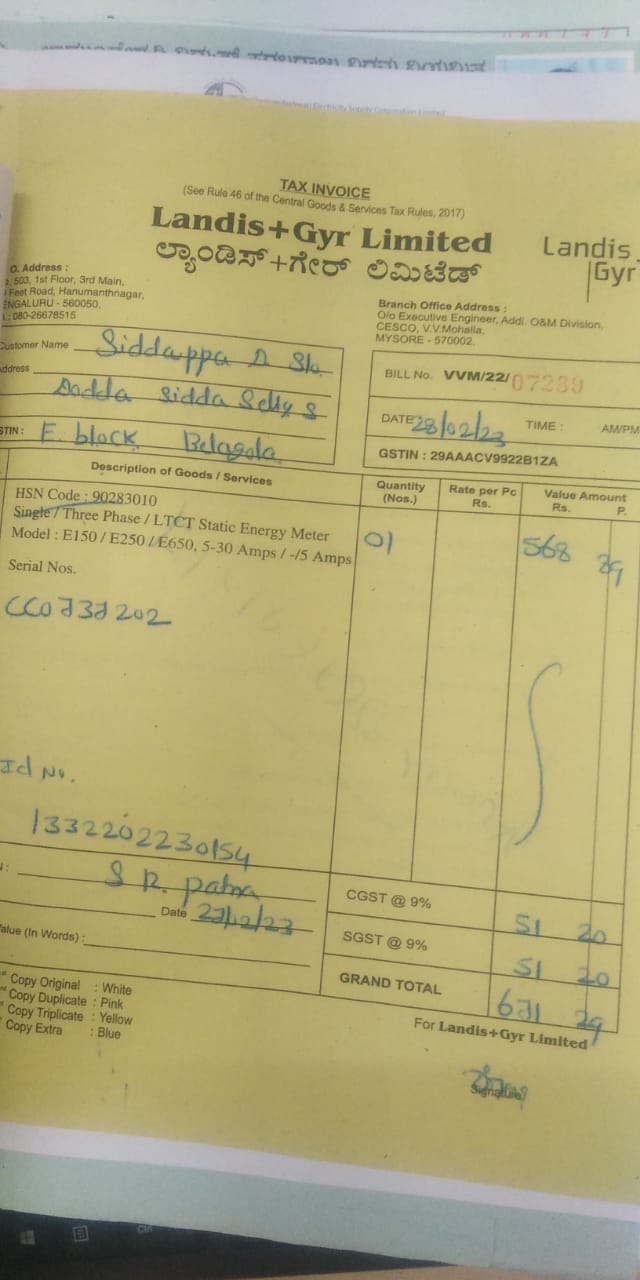 TAX INVOICE
(See Rule 46 of the Central Goods & Services Tax Rules, 2017)
Landis+Gyr Limited
ಲ್ಯಾಂಡಿಸ್+ಗೇರ್ ಲಿಮಿಟೆಡ್
Landis
Gyr
O. Address :
503, 1st Floor, 3rd Main,
Feet Road, Hanumanthnagar,
ENGALURU - 560050.
080-26678515
Branch Office Address :
O/o Executive Engineer, Addl. O&M Division,
CESCO, V.V.Mohalla,
MYSORE - 570002.
Customer Name Siddappa D S/o.
Address Dodda Sidda Setty S
STIN : E block Belagola
BILL No. VVM/22/07289
DATE 28/02/23 TIME : AM/PM
GSTIN : 29AAACV9922B1ZA
Description of Goods / Services Quantity (Nos.) Rate per Pc Rs. Value Amount Rs. P.
HSN Code : 90283010
Single / Three Phase / LTCT Static Energy Meter
Model : E150 / E250 / E650, 5-30 Amps / -/5 Amps 01 568 89
Serial Nos.
CC0737202
Id No.
1332202230154
S R. patna
Date 27/12/23
CGST @ 9% 51 20
SGST @ 9% 51 20
GRAND TOTAL 671 29
alue (In Words) :
Copy Original : White
Copy Duplicate : Pink
Copy Triplicate : Yellow
Copy Extra : Blue
For Landis+Gyr Limited
Signature